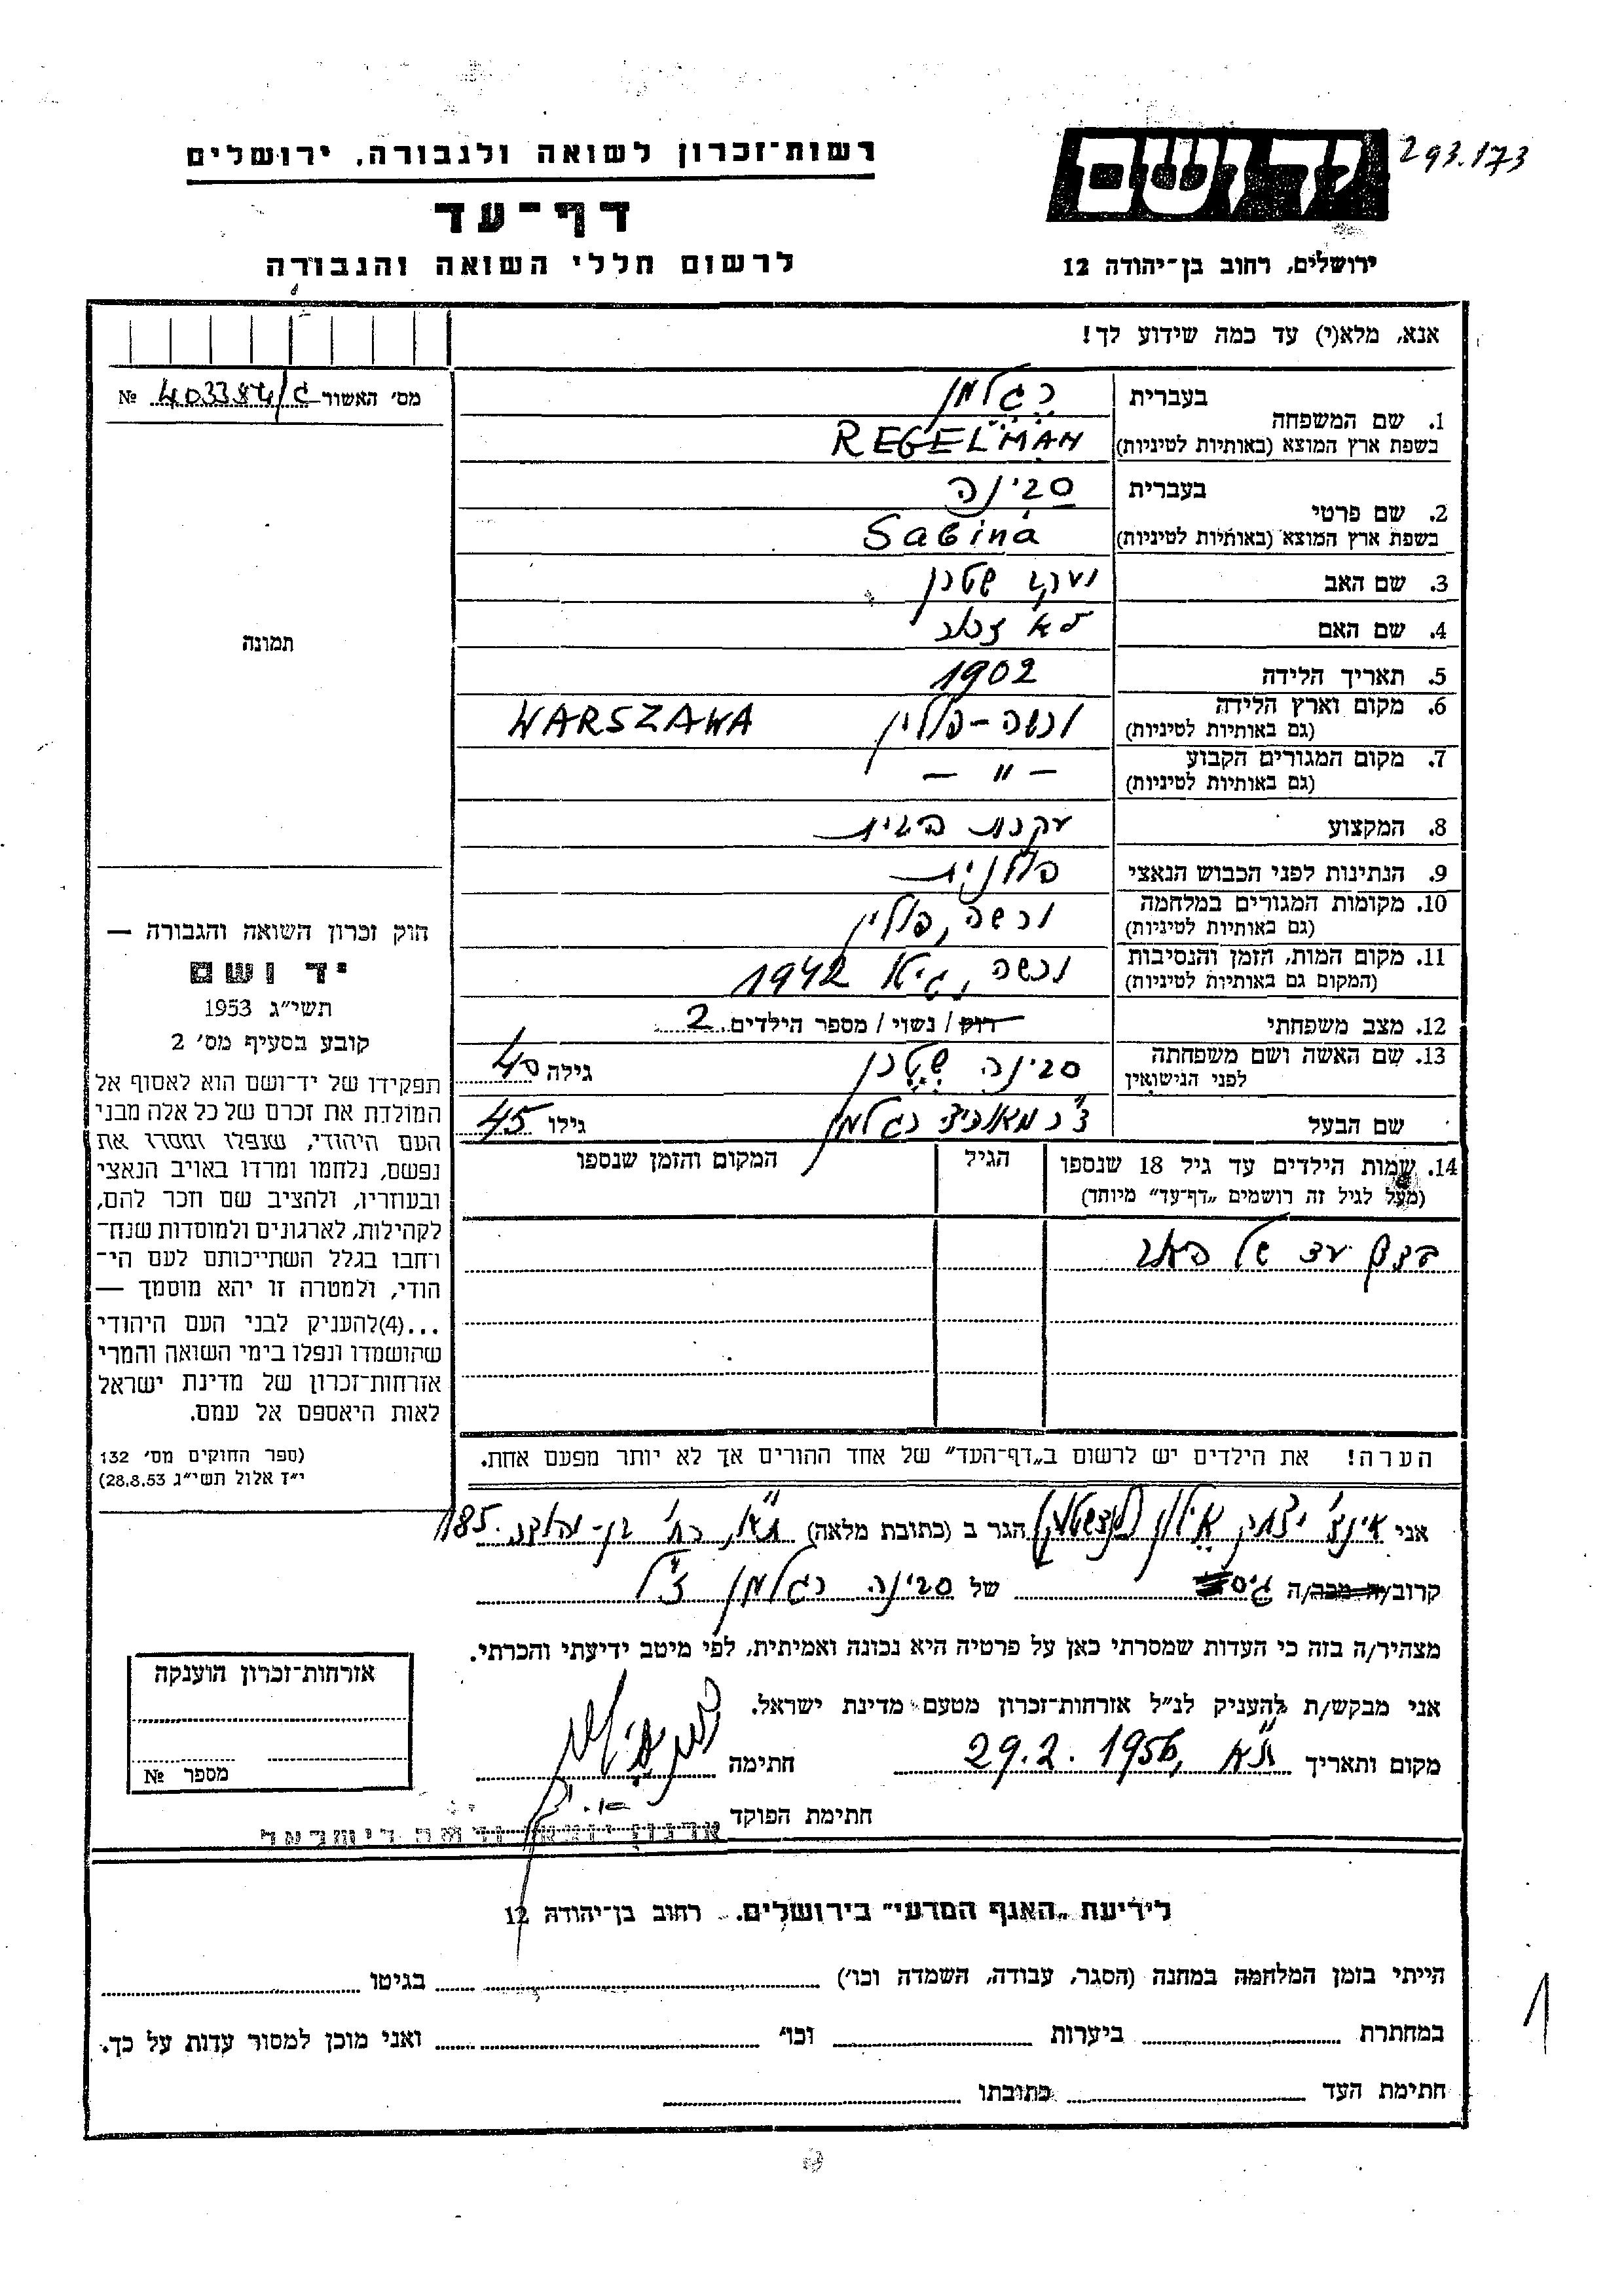 ידושם
293.173
רשות־זכרון לשואה ולגבורה, ירושלים
דף־עד
לרשום חללי השואה והגבורה
ירושלים, רחוב בן־יהודה 12
אנא, מלא(י) עד כמה שידוע לך!
מס׳ האשור № 403384/ג
1. שם המשפחה
בעברית רגלמן
בשפת ארץ המוצא (באותיות לטיניות) REGELMAN
2. שם פרטי
בעברית סבינה
בשפת ארץ המוצא (באותיות לטיניות) Sabina
3. שם האב יעקב שטרן
4. שם האם לא זכור
5. תאריך הלידה 1902
6. מקום וארץ הלידה (גם באותיות לטיניות) ורשה - פולין WARSZAWA
7. מקום המגורים הקבוע (גם באותיות לטיניות) — " —
8. המקצוע עקרת בית
9. הנתינות לפני הכבוש הנאצי פולנית
10. מקומות המגורים במלחמה (גם באותיות לטיניות) ורשה, פולין
11. מקום המות, הזמן והנסיבות (המקום גם באותיות לטיניות) ורשה, גיטו 1942
12. מצב משפחתי רווק / נשוי / מספר הילדים 2
13. שם האשה ושם משפחתה לפני הנישואין סבינה שטרן גילה 40
שם הבעל ד"ר מאוריצי רגלמן גילו 45
14. שמות הילדים עד גיל 18 שנספו
(מעל לגיל זה רושמים „דף־עד" מיוחד)
הגיל
המקום והזמן שנספו
בדף עד של האב
הערה! את הילדים יש לרשום ב„דף־העד" של אחד ההורים אך לא יותר מפעם אחת.
תמונה
חוק זכרון השואה והגבורה —
יד ושם
תשי״ג 1953
קובע בסעיף מס׳ 2
תפקידו של יד־ושם הוא לאסוף אל
המולדת את זכרם של כל אלה מבני
העם היהודי, שנפלו ומסרו את
נפשם, נלחמו ומרדו באויב הנאצי
ובעוזריו, ולהציב שם וזכר להם,
לקהילות, לארגונים ולמוסדות שנח־
רבו בגלל השתייכותם לעם הי־
הודי, ולמטרה זו יהא מוסמך —
...(4) להעניק לבני העם היהודי
שהושמדו ונפלו בימי השואה והמרי
אזרחות־זכרון של מדינת ישראל
לאות היאספם אל עמם.
(ספר החוקים מס׳ 132
י״ז אלול תשי״ג 28.8.53)
אני אינג' יצחק אילון הגר ב (כתובת מלאה) ת"א, רח' בן-יהודה 185
קרוב/ה מכר/ה גיס של סבינה רגלמן ז"ל
מצהיר/ה בזה כי העדות שמסרתי כאן על פרטיה היא נכונה ואמיתית, לפי מיטב ידיעתי והכרתי.
אני מבקש/ת להעניק לנ״ל אזרחות־זכרון מטעם מדינת ישראל.
מקום ותאריך ת"א, 29.2.1956 חתימה
חתימת הפוקד
אזרחות־זכרון הוענקה
מספר №
לידיעת „האגף המדעי" בירושלים. רחוב בן־יהודה 12
הייתי בזמן המלחמה במחנה (הסגר, עבודה, השמדה וכו׳) בגיטו
במחתרת ביערות וכו׳ ואני מוכן למסור עדות על כך.
חתימת העד כתובתו
1